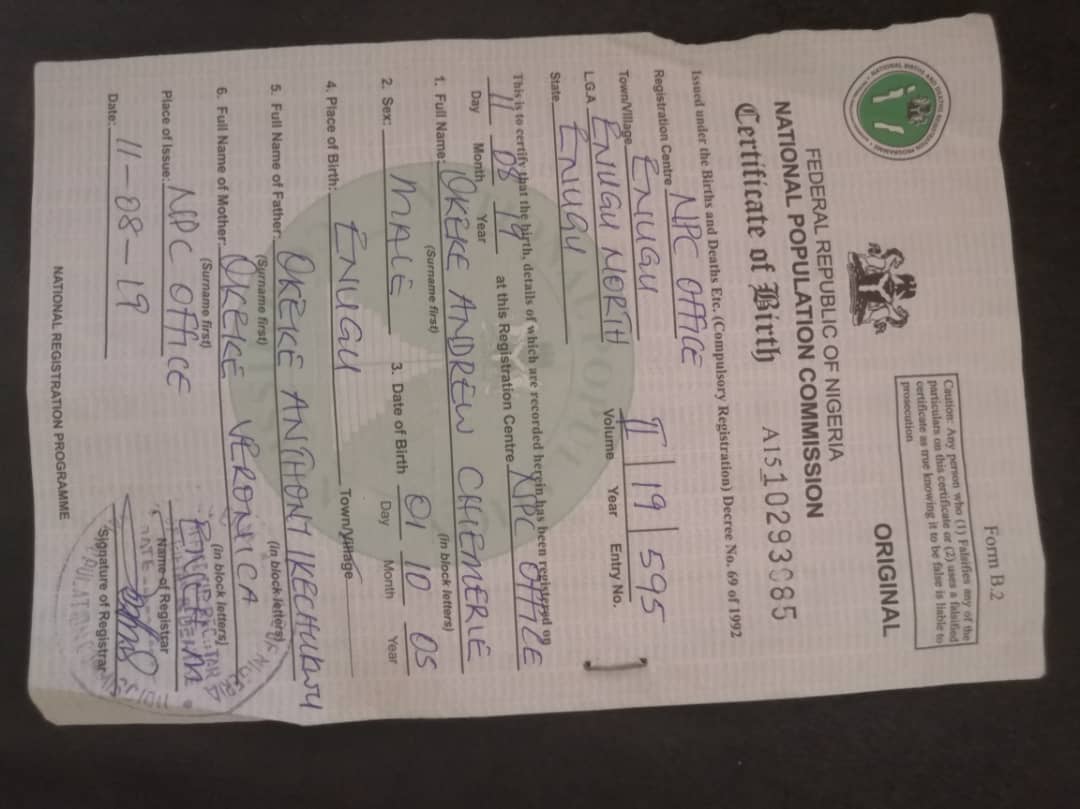 Form B.2
ORIGINAL
Caution: Any person who (1) Falsifies any of the
particulars on this certificate or (2) uses a falsified
certificate as true knowing it to be false is liable to
prosecution
FEDERAL REPUBLIC OF NIGERIA
NATIONAL POPULATION COMMISSION
Certificate of Birth
Issued under the Births and Deaths Etc. (Compulsory Registration) Decree No. 69 of 1992
Registration Centre NPC OFFICE
Town/Village ENUGU
II 19 595
L.G.A ENUGU NORTH
Volume Year Entry No.
State ENUGU
This is to certify that the birth, details of which are recorded herein has been registered on
11 08 19 at this Registration Centre NPC OFFICE
Day Month Year
1. Full Name: OKEKE ANDREW CHIEMERIE
(Surname first) (in block letters)
2. Sex: MALE 3. Date of Birth 01 10 05
Day Month Year
4. Place of Birth: ENUGU Town/Village
5. Full Name of Father: OKEKE ANTHONY IKECHUKWU
(Surname first) (in block letters)
6. Full Name of Mother: OKEKE VERONICA
(Surname first) (in block letters)
Place of Issue: NPC OFFICE
Name of Registrar
Date: 11-08-19
Signature of Registrar
NATIONAL REGISTRATION PROGRAMME